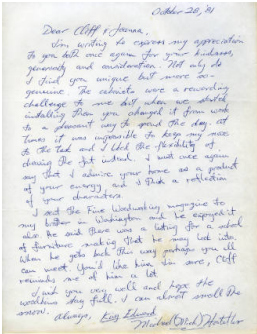 October 28, '81
Dear Cliff & Joanna.
I'm writing to express my appreciation
to you both once again for your kindness,
generosity and consideration. Not only do
I find you unique but more so-
genuine. The cabinets were a rewarding
challenge to me but when we started
installing them you changed it from work
to a pleasant way to spend the day. At
times it was impossible to keep my nose
to the task and I liked the flexibility of
chewing the fat instead. I must once again
say that I admire your home as a product
of your energy and I think a reflection
of your characters.
I sent the Fine Woodworking magazine to
my brother in Washington and he enjoyed it
also he said there was a listing for a school
of furniture making that he may look into.
When he gets back this way perhaps you all
can meet. You'd like him I'm sure, Cliff
reminds me of him a lot.
I wish you very well and hope the
woodbins stay full. I can almost smell the
snow.
always,
Michael (Mich)